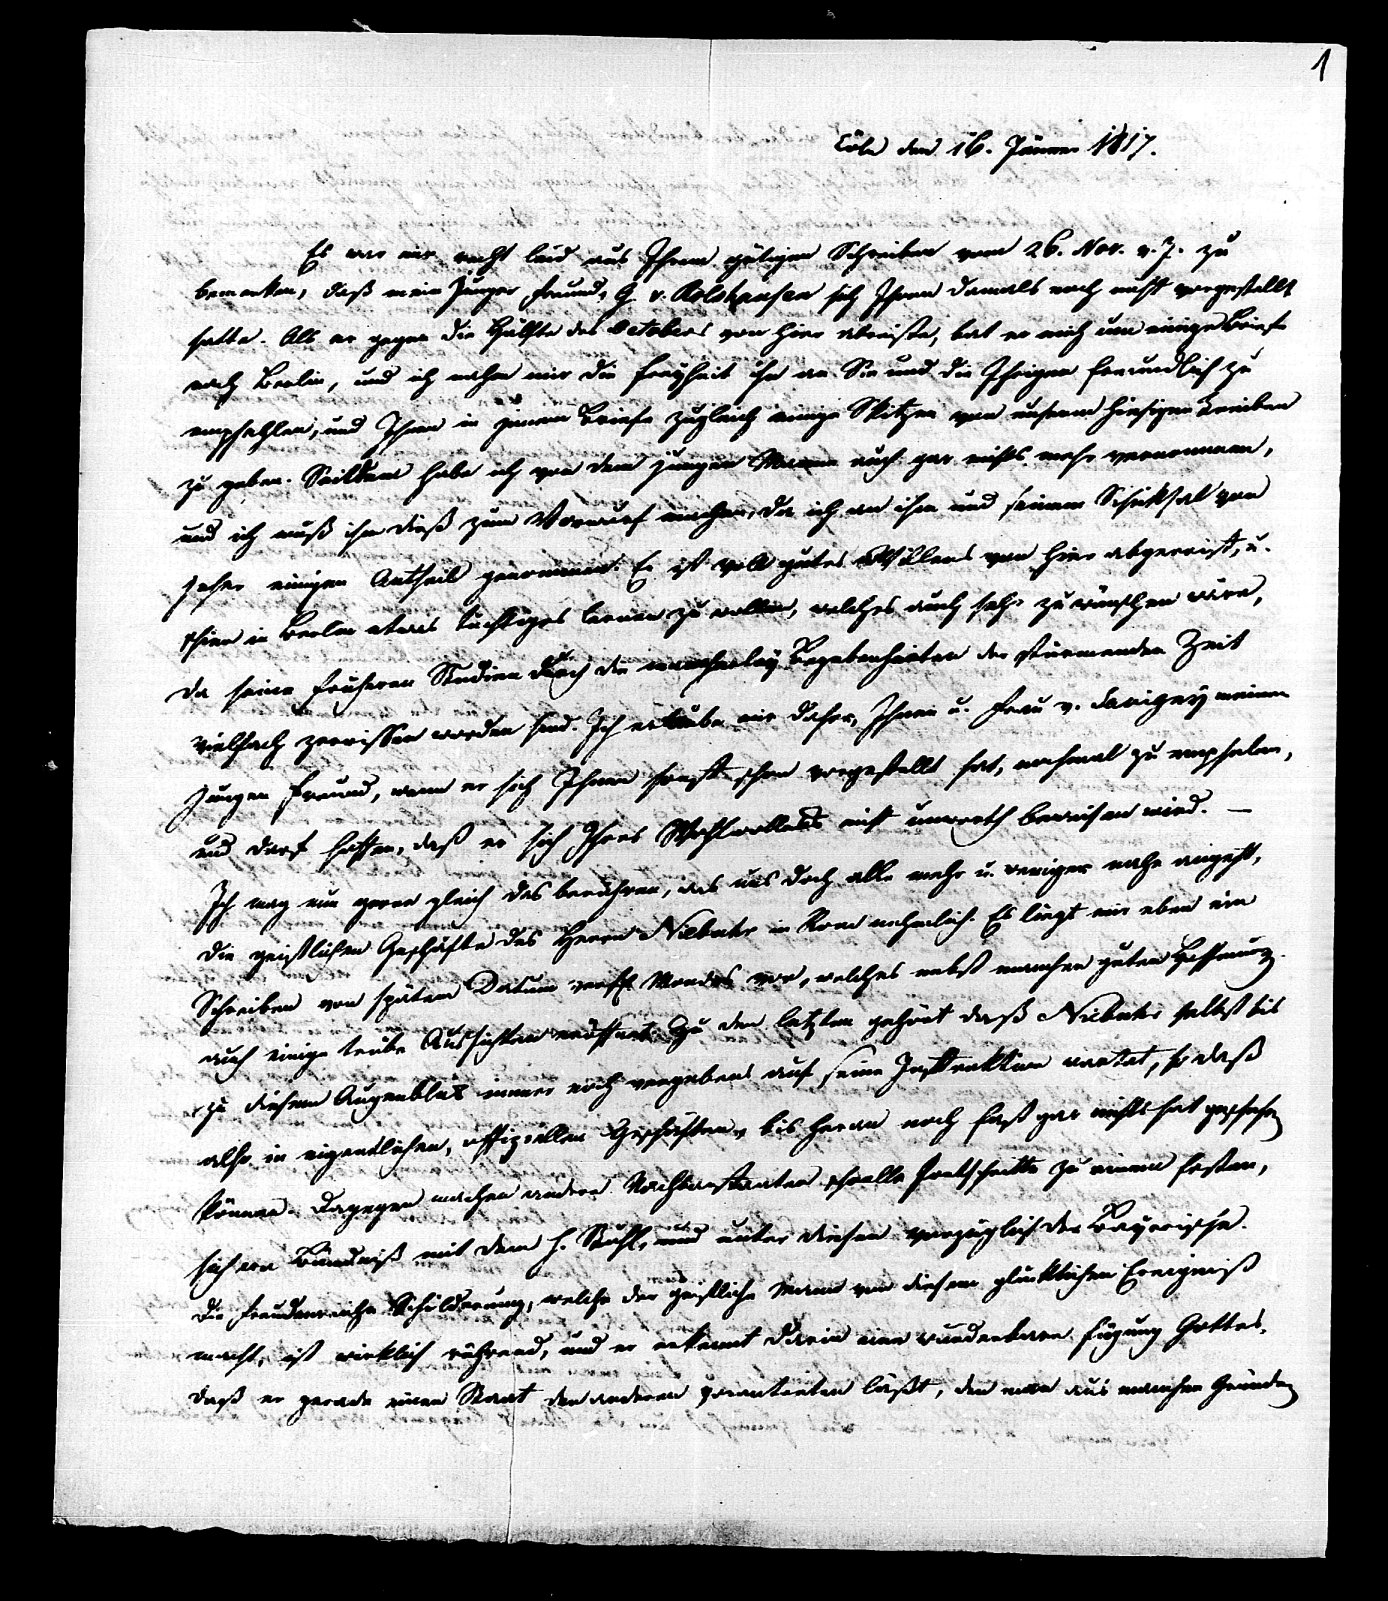 1
Cöln den 16. Jänner 1817.
Es war mir recht leid aus Ihrem gütigen Schreiben vom 26. Nov. v. J. zu
bemerken, daß mein junger Freund, G. v. sich Ihnen damals noch nicht vorgestellt
hatte. Als er gegen die Hälfte des Octobers von hier abreiste, bat er mich um einige Briefe
nach Berlin, und ich nahm mir die Freyheit ihn an Sie und die Ihrigen freundlich zu
empfehlen, und Ihnen in jenem Briefe zugleich einige Skitzen von unserm hiesigen Treiben
zu geben. Seitdem habe ich von dem jungen Manne auch gar nichts mehr vernommen,
und ich muß ihm dieß zum Vorwurf machen, da ich an ihm und seinem Schicksal von
jeher einigen Antheil genommen. Er ist voll gutes Willens von hier abgereist, u.
schien in Berlin etwas tüchtiges lernen zu wollen, welches auch sehr zu wünschen wäre,
da seine früheren Studien durch die mancherley Begebenheiten der stürmenden Zeit
vielfach zerrissen worden sind. Ich erlaube mir daher, Ihnen u. Frau v. Savigny meinen
jungen Freund, wenn er sich Ihnen sonst schon vorgestellt hat, nochmal zu empfehlen,
und darf hoffen, daß er sich Ihres Wohlwollens nicht unwerth beweisen wird. —
Ich mag nun gerne gleich das berühren, was uns doch alle mehr u. weniger nahe angeht,
die geistlichen Geschäfte des Herrn Niebuhr in Rom nehmlich. Es liegt mir eben ein
Schreiben von spätem Datum Monats vor, welches nebst manchen guten Hoffnung.
auch einige trübe Aussichten eröffnet. Zu den letzten gehört daß Niebuhr selbst bis
zu diesem Augenblick immer noch vergebens auf seine Instruktion wartet, so daß
also in eigentlichen, offiziellen Geschäften, bis heran noch fast gar nichts hat geschehen
können. Dagegen machen andere Nachbarstaaten schnelle Fortschritte zu einem festen,
sichern Bündniß mit dem h. Stuhl, und unter diesen vorzüglich der Bayerische.
Die freudenreiche Schilderung, welche der geistliche Mann von diesem glücklichen Ereigniß
macht, ist wirklich rührend, und er erkennt darin eine wunderbare Fügung Gottes,
daß er gerade einen Staat den anderen vorantreten läßt, den man aus manchen Gründen